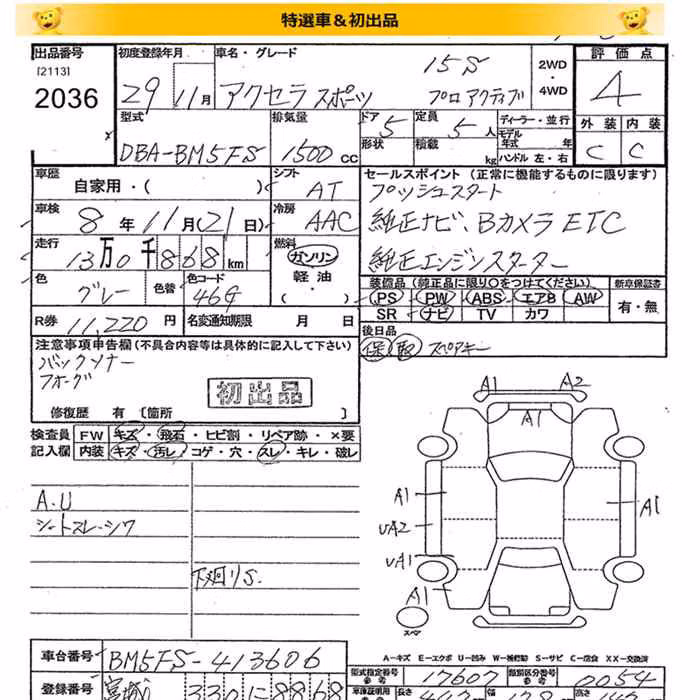 特選車&初出品
出品番号
[2113]
2036
初度登録年月
29 11月
車名・グレード
アクセラスポーツ
15S
プロアクティブ
2WD
・
4WD
評価点
4
外装 内装
C C
型式
DBA-BM5FS
排気量
1500 cc
ドア 5
形状
定員 5人
積載 kg
ディーラー・並行
モデル年式 年
ハンドル 左・右
車歴
自家用・( )
シフト
AT
車検
8年11月(21日)
冷房
AAC
走行
13万0千868km
燃料
ガソリン
軽・油
・( )
色
グレー
色替
色コード
46G
R券 11,220円
名変通知期限 月 日
セールスポイント (正常に機能するものに限ります)
プッシュスタート
純正ナビ、Bカメラ ETC
純正エンジンスターター
装備品 (純正品に限り○をつけてください。)
PS PW ABS エアB AW
SR ナビ TV カワ
新車保証書
有・無
後日品
保 取 スペアキー
注意事項申告欄 (不具合内容等は具体的に記入して下さい)
バックソナー
フォーグ
初出品
修復歴 有 [箇所 ]
検査員 記入欄
FW キズ・飛石・ヒビ割・リペア跡・×要
内装 キズ・汚レ・コゲ・穴・スレ・キレ・破レ
A.U
シートスレ・シワ
下廻りS.
A1 A2
A1
A1 A1
UA2
UA1
A1
スペア
A―キズ E―エクボ U―凹み W―補修跡 S―サビ C―腐食 XX―交換済
車台番号 BM5FS-413606
登録番号 宮城 330 に 8868
型式指定番号 参考 17607
類別区分番号 参考 0054
車庫証明用 長さ 幅 高さ